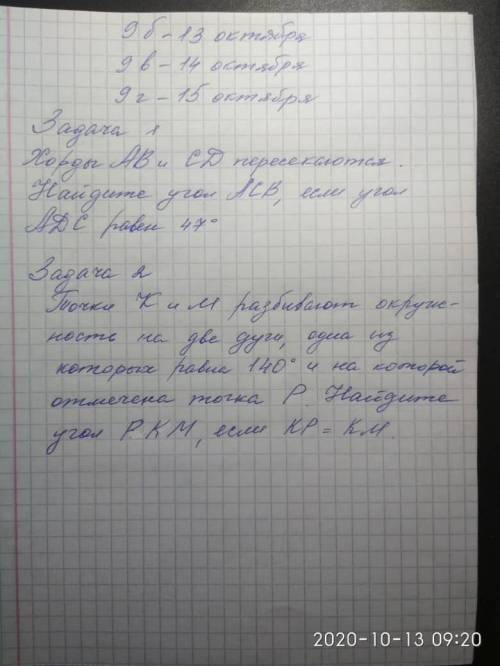 9 б - 13 октября
9 в - 14 октября
9 г - 15 октября
Задача 1
Хорды АВ и СD пересекаются.
Найдите угол АСВ, если угол
ADC равен 47°
Задача 2
Точки К и М разбивают окруж-
ность на две дуги, одна из
которых равна 140° и на которой
отмечена точка Р. Найдите
угол РКМ, если КР = КМ.
2020-10-13 09:20